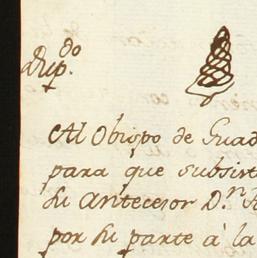 Dup.do
Al Obispo de Guad
para que subsist
su antecesor D.n
por su parte à la